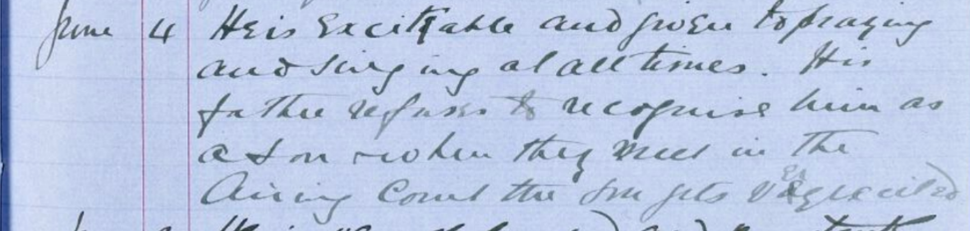 June 4 He is Excitable and given to praying
and singing at all times. His
father refuses to recognise him as
a son & when they meet in the
Airing Court the son gets very excited